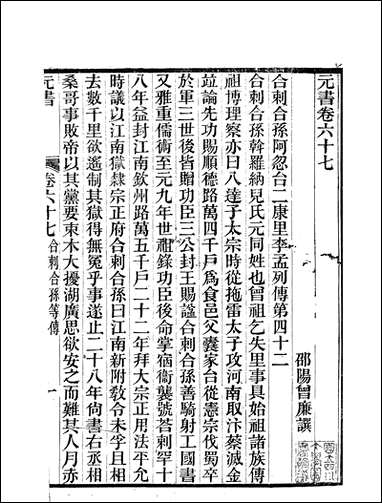 元書卷六十七
邵陽曾廉譔
合剌合孫阿忽台二康里李孟列傳第四十二
合剌合孫斡羅納兒氏元同姓也曾祖乞失里事具始祖諸族傳
祖博理察亦曰八達子太宗時從拖雷太子攻河南取汴蔡滅金
竝論先功賜順德路萬四千戶為食邑父囊家台從憲宗伐蜀卒
於軍三世後皆贈功臣三公封王賜諡合剌合孫善騎射工國書
又雅重儒術至元九年世祖錄功臣後命掌宿衞襲號荅剌罕十
八年益封江南欽州路萬五千戶二十二年拜大宗正用法平允
時議以江南獄隸宗正府合剌合孫曰江南新附敎令未孚且相
去數千里欲遙制其獄得無冤乎事遂止二十八年尙書右丞相
桑哥事敗帝以其黨要束木大擾湖廣思欲安之而難其人月赤
元書
卷六十七
合剌合孫等傳